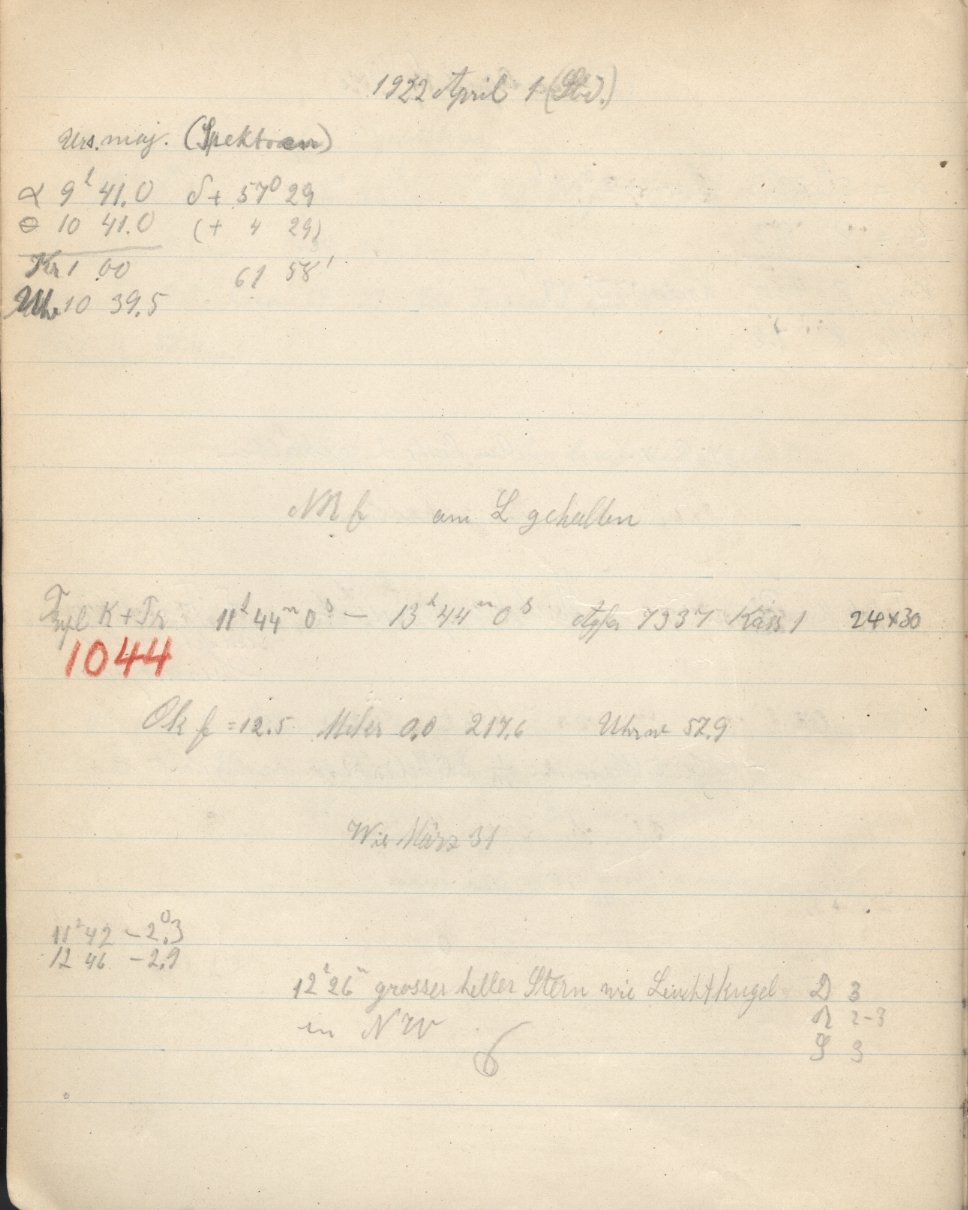 1922 April 1 (Sbd.)
Urs. maj. (Spektren)
α 9ʰ 41.0 δ + 57⁰ 29
Θ 10 41.0 (+ 4 29)
1 00 61 58'
Uhr 10 39.5
am L gehalten
K + Tr 11ʰ 44ᵐ 0ˢ — 13ʰ 44ᵐ 0ˢ Agfa 7337 Kass 1 24×30
1044
Ok f = 12.5 Meter 0,0 217,6 Uhrw 57,9
Wie März 31
11ʰ 42 – 2⁰,3
12 46 – 2,9
12ʰ 26ᵐ grosser heller Stern wie Leuchtkugel D 3
in NW R 2-3
G 3